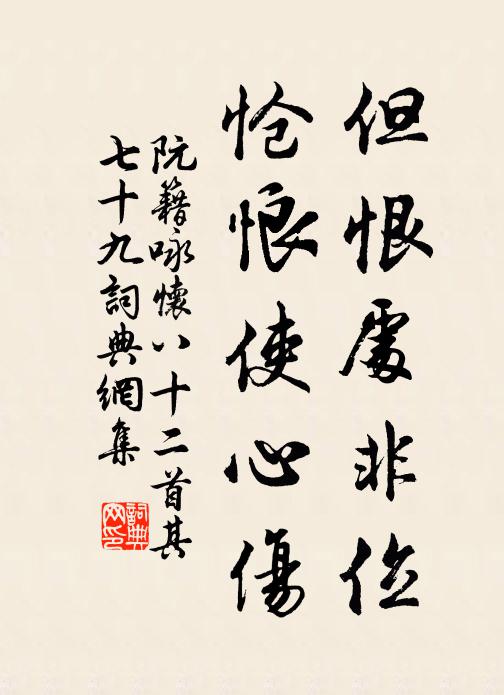 但恨處非位
愴悢使心傷
阮籍咏懷八十二首其
七十九詞典網集
詞典
网印